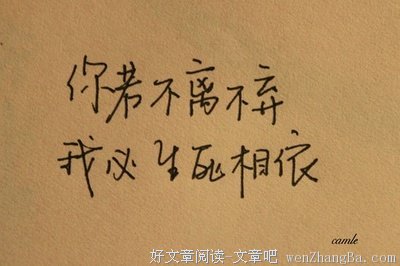 你若不离不弃
我必生死相依
camle
好文章阅读-文章吧 wenZhangBa.com